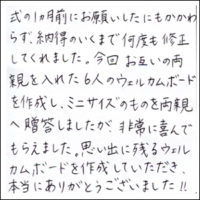 式の1ヵ月前にお願いしたにもかかわ
らず、納得のいくまで何度も修正
してくれました。今回お互いの両
親を入れた6人のウェルカムボード
を作成し、ミニサイズのものを両親
へ贈答しましたが、非常に喜んで
もらえました。思い出に残るウェル
カムボードを作成していただき、
本当にありがとうございました!!